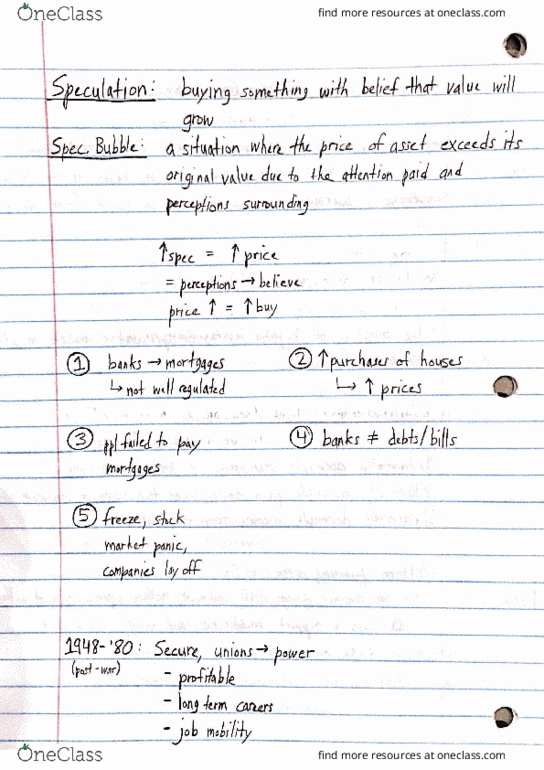 OneClass find more resources at oneclass.com
Speculation: buying something with belief that value will
grow
Spec. Bubble: a situation where the price of asset exceeds its
original value due to the attention paid and
perceptions surrounding
↑spec = ↑ price
= perceptions → believe
price ↑ = ↑ buy
① banks → mortgages ② ↑ purchases of houses
↳ not well regulated ↳ ↑ prices
③ ppl failed to pay ④ banks ≠ debts/bills
mortgages
⑤ freeze, stock
market panic,
companies lay off
1948-'80: Secure, unions → power
(post-war) - profitable
- long term careers
- job mobility
OneClass find more resources at oneclass.com